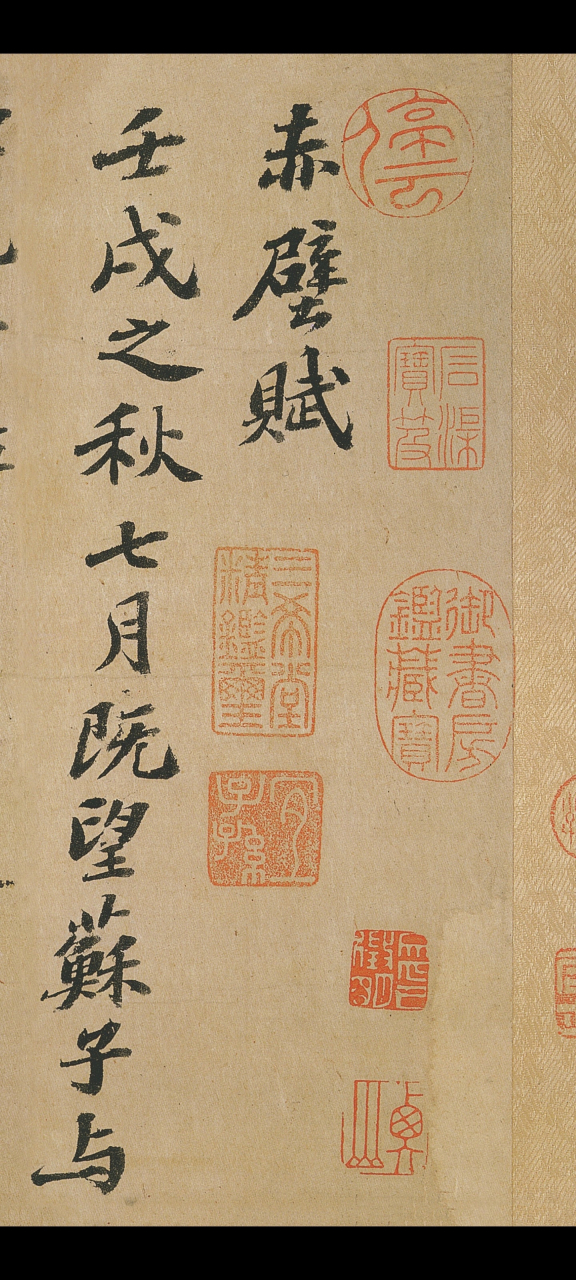 停云
石渠寶笈
御書房鑑藏寶
赤壁賦
三希堂精鑑璽
宜子孫
壬戌之秋七月既望蘇子与